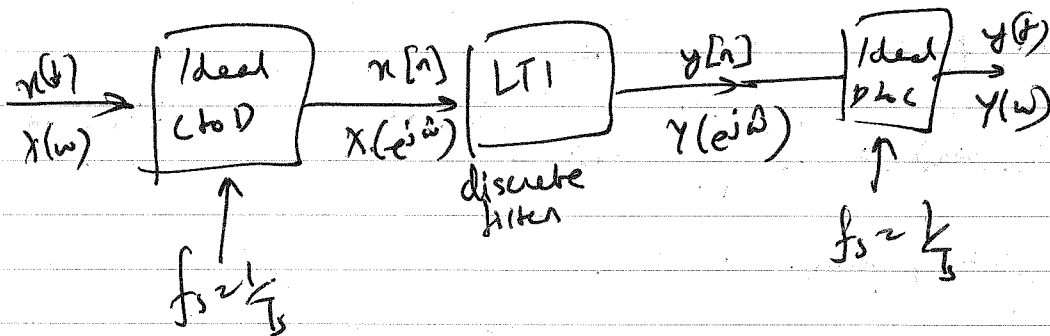 x(t)
X(ω)
Ideal
C to D
x[n]
X(e^{jω̂})
LTI
discrete
filter
y[n]
Y(e^{jω̂})
Ideal
D to C
y(t)
Y(ω)
fs = 1/Ts
fs = 1/Ts